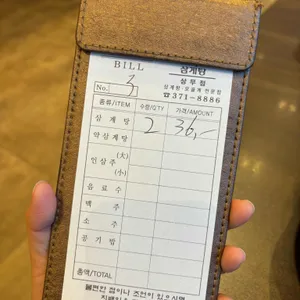 BILL
삼계탕
상무점
삼계탕·오골계 전문점
☎371-8886
No. 3
종류/ITEM 수량/QTY 가격/AMOUNT
삼계탕 2 36,-
약삼계탕
인삼주 (大)
(小)
음료수
맥주
소주
공기밥
총액/TOTAL
불편한 점이나 조언이 있으시면